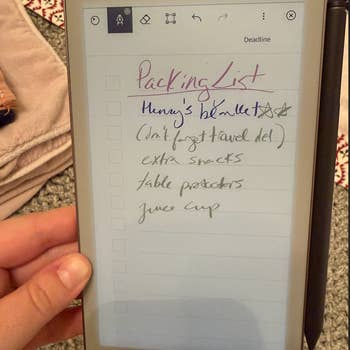 Deadline
Packing List
Henry's blanket ☆☆
(don't forget travel
extra snacks
table protectors
juice cup